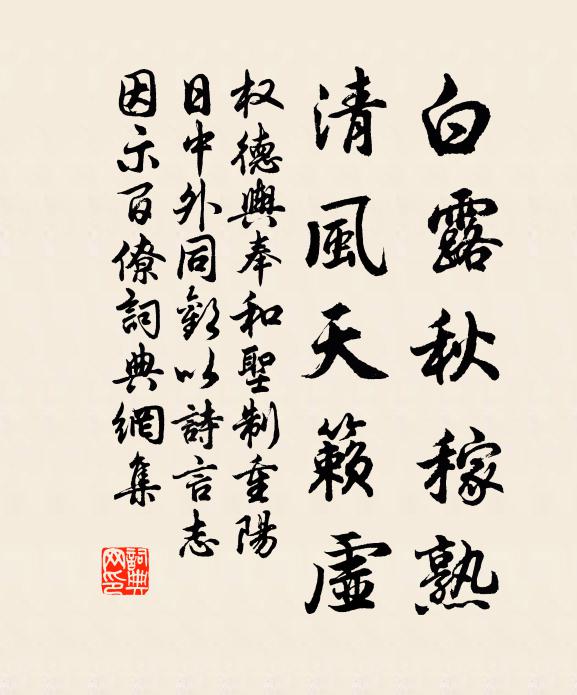 白露秋稼熟
清風天籟虛
权德輿奉和聖制重陽
日中外同歡以詩言志
因示百僚詞典網集
詞典網印